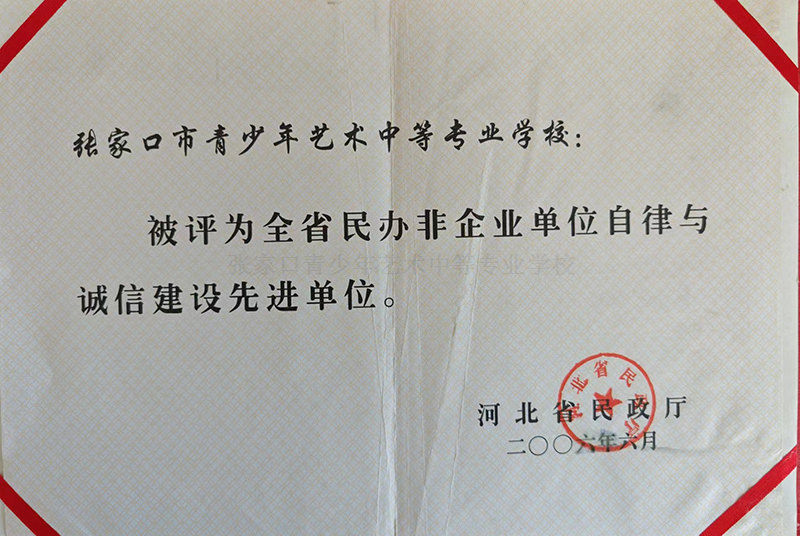 张家口市青少年艺术中等专业学校：
被评为全省民办非企业单位自律与
张家口青少年艺术中等专业学校
诚信建设先进单位。
河北省民政厅
河北省民政厅
二〇〇六年六月